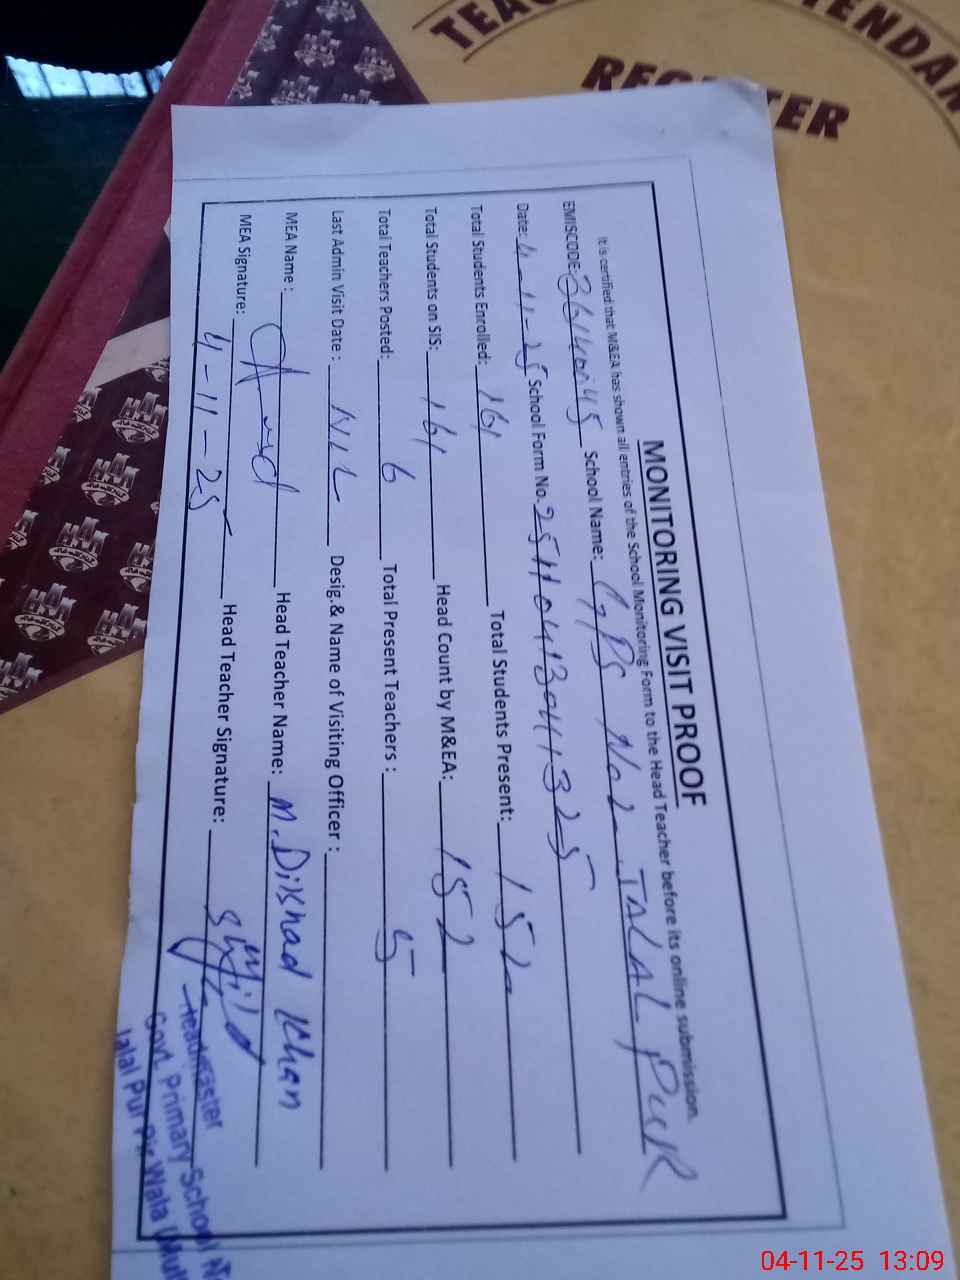 TEACHER ATTENDANCE
REGISTER
MONITORING VISIT PROOF
It is certified that M&EA has shown all entries of the School Monitoring Form to the Head Teacher before its online submission.
EMISCODE: School Name: GPS No 2 JALAL PUR
Date: 4-11-25 School Form No. 25110413041325
Total Students Enrolled: 161 Total Students Present: 152
Total Students on SIS: 161 Head Count by M&EA: 152
Total Teachers Posted: 6 Total Present Teachers : 5
Last Admin Visit Date : NIL Desig.& Name of Visiting Officer :
MEA Name : Head Teacher Name: M. Dilshad Khan
MEA Signature: 4-11-25 Head Teacher Signature:
Headmaster
Govt. Primary School
Jalal Pur Pir Wala
04-11-25 13:09